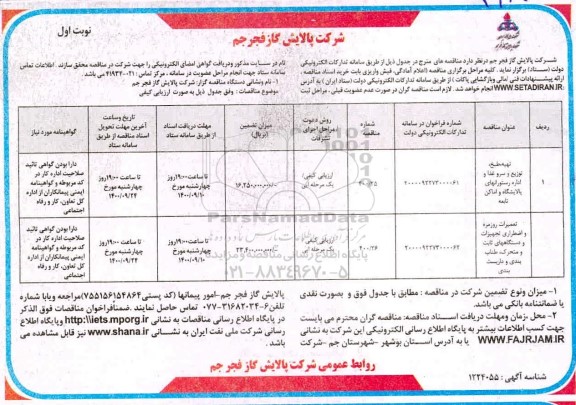 نوبت اول
شرکت پالایش گاز فجر جم
شرکت پالایش گاز فجر جم در نظر دارد مناقصه های مشرح در جدول ذیل از طریق سامانه تدارکات الکترونیکی
دولت (ستاد) برگزار نماید. کلیه مراحل برگزاری مناقصه (اعلام آمادگی، فیش واریزی بابت خرید اسناد مناقصه،
ارائه پیشنهادات فنی /مالی وبازگشایی پاکات) از طریق سامانه تدارکات الکترونیکی دولت (ستاد ایران) به آدرس
WWW.SETADIRAN.IR انجام خواهد شد. لازم است مناقصه گران در صورت عدم عضویت قبلی، مراحل ثبت
نام در سایت مذکور ودریافت گواهی امضای الکترونیکی را جهت شرکت در مناقصه محقق سازند. اطلاعات تماس
سامانه ستاد جهت انجام مراحل عضویت در سامانه: مرکز تماس: ۰۲۱-۴۱۹۳۴ می باشد.
۱-نام ونشانی دستگاه مناقصه گزار: شرکت پالایش گاز فجر جم
موضوع مناقصات: وفق جدول ذیل به صورت ارزیابی کیفی
ردیف
عنوان مناقصه
شماره فراخوان در سامانه تدارکات الکترونیکی دولت
شماره مناقصه
روش دعوت /مراحل اجرای تشریفات
میزان تضمین (ریال)
مهلت دریافت اسناد از طریق سامانه ستاد
تاریخ وساعت آخرین مهلت تحویل اسناد مناقصه از طریق سامانه ستاد
گواهینامه مورد نیاز
۱
تهیه،طبخ، توزیع و سرو غذا و اداره رستورانهای پالایشگاه و اماکن تابعه
۲۰۰۰۰۹۲۲۷۳۰۰۰۰۶۱
۴۰۰/۲۵
ارزیابی کیفی/ یک مرحله ایی
۱۶,۲۵۰,۰۰۰,۰۰۰/-
تا ساعت ۱۹:۰۰روز چهارشنبه مورخ ۱۴۰۰/۰۹/۱۰
تا ساعت ۱۹:۰۰روز چهارشنبه مورخ ۱۴۰۰/۰۹/۲۴
دارا بودن گواهی تائید صلاحیت اداره کار در کد مربوطه و گواهینامه ایمنی پیمانکاران از اداره کل تعاون، کار و رفاه اجتماعی
تعمیرات روزمره و اضطراری تجهیزات و دستگاههای ثابت و متحرک، طناب بندی و داربست بندی
۲۰۰۰۰۹۲۲۷۳۰۰۰۰۶۲
۴۰۰/۲۶
ارزیابی کیفی/ یک مرحله ایی
تا ساعت ۱۹:۰۰روز چهارشنبه مورخ ۱۴۰۰/۰۹/۱۰
تا ساعت ۱۹:۰۰روز چهارشنبه مورخ ۱۴۰۰/۰۹/۲۴
دارا بودن گواهی تائید صلاحیت اداره کار در کد مربوطه و گواهینامه ایمنی پیمانکاران از اداره کل تعاون، کار و رفاه اجتماعی
ParsNamadData
۰۲۱-۸۸۳۴۹۶۷۰-۵
۱- میزان ونوع تضمین شرکت در مناقصه: مطابق با جدول فوق و بصورت نقدی
یا ضمانتنامه بانکی می باشد.
۲- محل ،زمان ومهلت دریافت اسناد مناقصه: مناقصه گران محترم می بایست
جهت کسب اطلاعات بیشتر به پایگاه اطلاع رسانی الکترونیکی این شرکت به نشانی
WWW.FAJRJAM.IR یا به آدرس استان بوشهر -شهرستان جم -شرکت
پالایش گاز فجر جم-امور پیمانها (کد پستی ۷۵۵۱۵۶۱۵۴۸۶۴)مراجعه ویابا شماره
تلفن۶-۰۷۷-۳۱۶۸۲۰۳۴ تماس حاصل نمایند .ضمنافراخوان مناقصات فوق الذکر
در پایگاه اطلاع رسانی مناقصات به نشانی http://iets.mporg.ir وپایگاه اطلاع
رسانی شرکت ملی نفت ایران به نشانی www.shana.ir نیز قابل مشاهده می
باشد .
روابط عمومی شرکت پالایش گاز فجر جم
شناسه آگهی : ۱۲۲۴۰۵۵